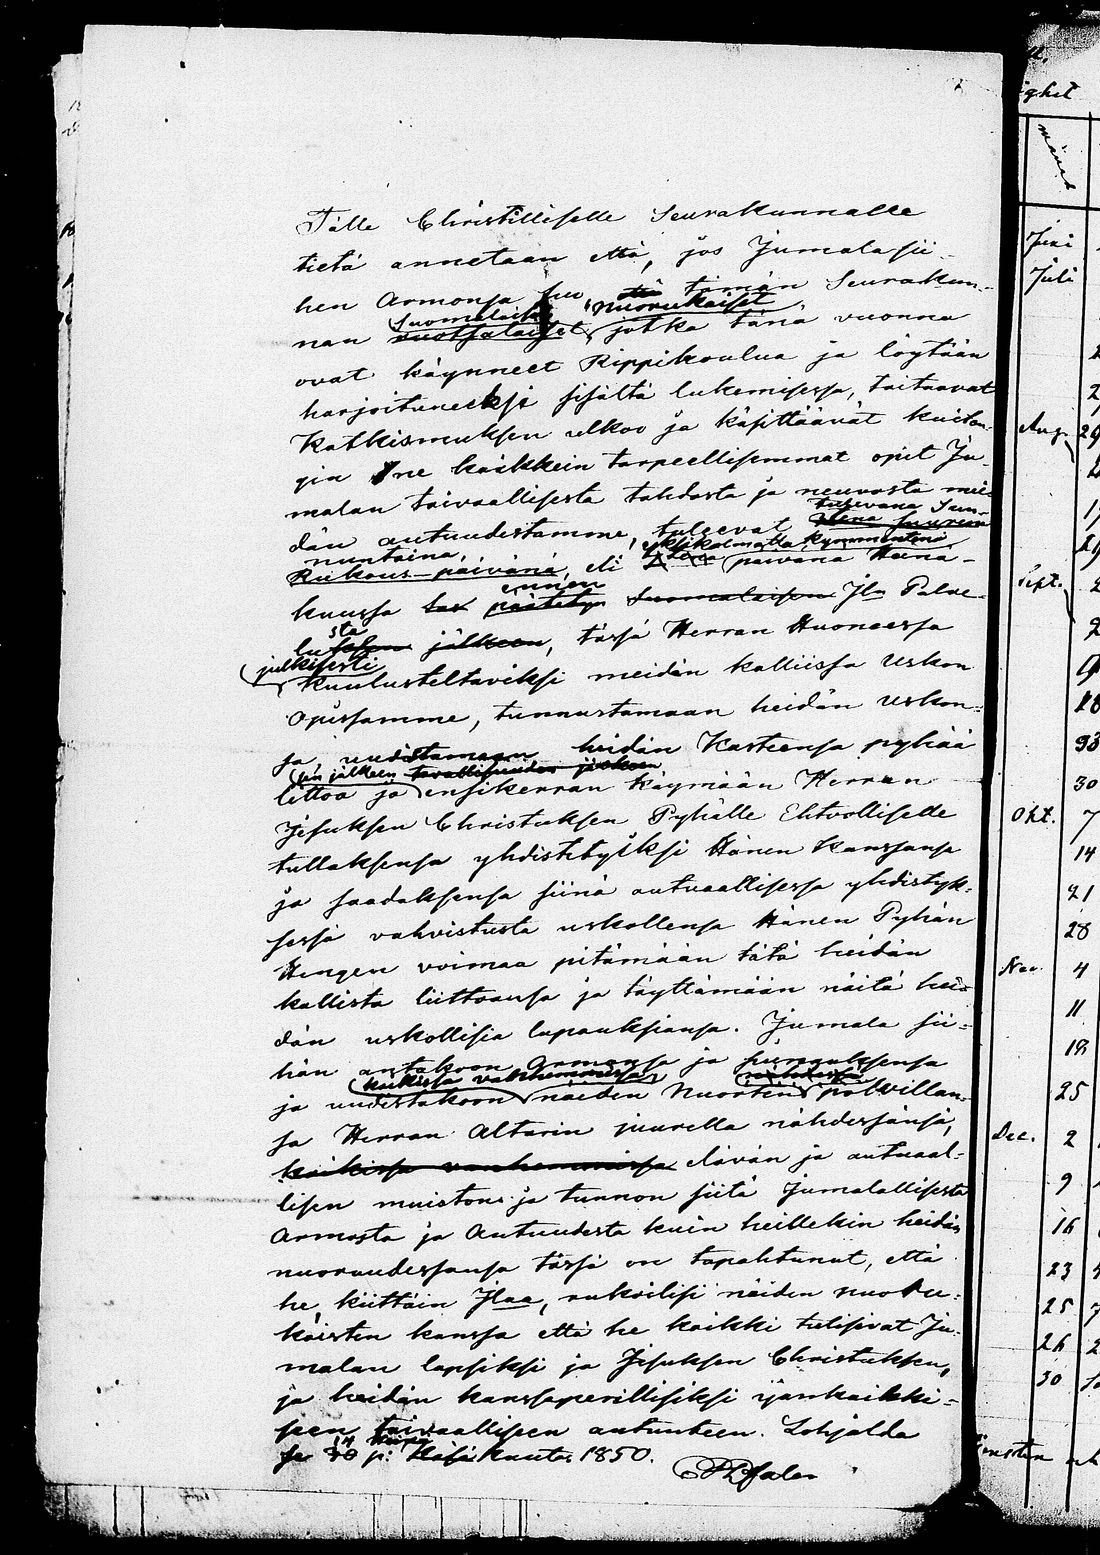 Tälle Christilliselle Seurakunnalle
tietä annetaan että, jos Jumala sii-
hen Armonsa suo että tämän Seurakun-
suomalaiset nuorukaiset
nan ruotsalaiset jotka tänä vuonna
ovat käynneet Rippikoulua ja löytään
harjoituneeksi sisältä lukemisessa, taitaavat
Katkismuksen ulkoo ja käsittäävät kuiten-
gin ne kaikkein tarpeellisemmat opit Ju-
malan taivaallisesta tahdosta ja neuvosta mei-
tulevana Sun-
dän autuudestamme, tuleevat
nuntaina
Rukous-päivänä, eli päivänä Heinä-
ennen
kuussa päätetyn Suomalaisen Jln Palve-
sta
luksen jälkeen, tässä Herran Huoneessa
julkisesti
kuulusteltaviksi meidän kalliissa Uskon
Opissamme, tunnustamaan heidän uskon-
sa, uudistamaan heidän Kasteensa pyhää
sen jälkeen tavallisuuden jälkeen
liittoa ja ensikerran käymään Herran
Jesuksen Christuksen Pyhälle Ehtoolliselle
tullaksensa yhdistetyiksi Hänen Kanssansa
ja saadaksensa siinä autuaallisessa yhdistyk-
sessä vahvistusta uskollensa Hänen Pyhän
Hengen voimaa pitämään tätä heidän
kallista liittoansa ja täyttämään näitä hei-
dän uskollisia lupauksiansa. Jumala sii-
hän antakoon Armonsa ja siunauksensa
kaikissa vanhemmissa nähdessä
ja uudistakoon näiden Nuorten polvillan-
sa Herran Altarin juurella nähdessänsä,
kaikissa vanhemmissa elävän ja autuaal-
lisen muiston ja tunnon siitä Jumalallisesta
Armosta ja Autuudesta kuin heillekin heidän
nuoruudessansa tässä on tapahtunut, että
he, kiittäin Jlaa, rukoilisi näiden nuoru-
kaisten kanssa että he kaikki tulisivat Ju-
malan lapsiksi ja Jesuksen Christuksen,
ja heidän kanssaperillisiksi ijankaikki-
seen taivaalliseen autuuteen. Lohjalda
14
se 30 p: Kesäkuuta 1850.
Juni
Juli
Aug.
Sept.
30
Okt. 7
14
21
28
Nov. 4
11
18
25
Dec. 2
9
16
23
25
26
30